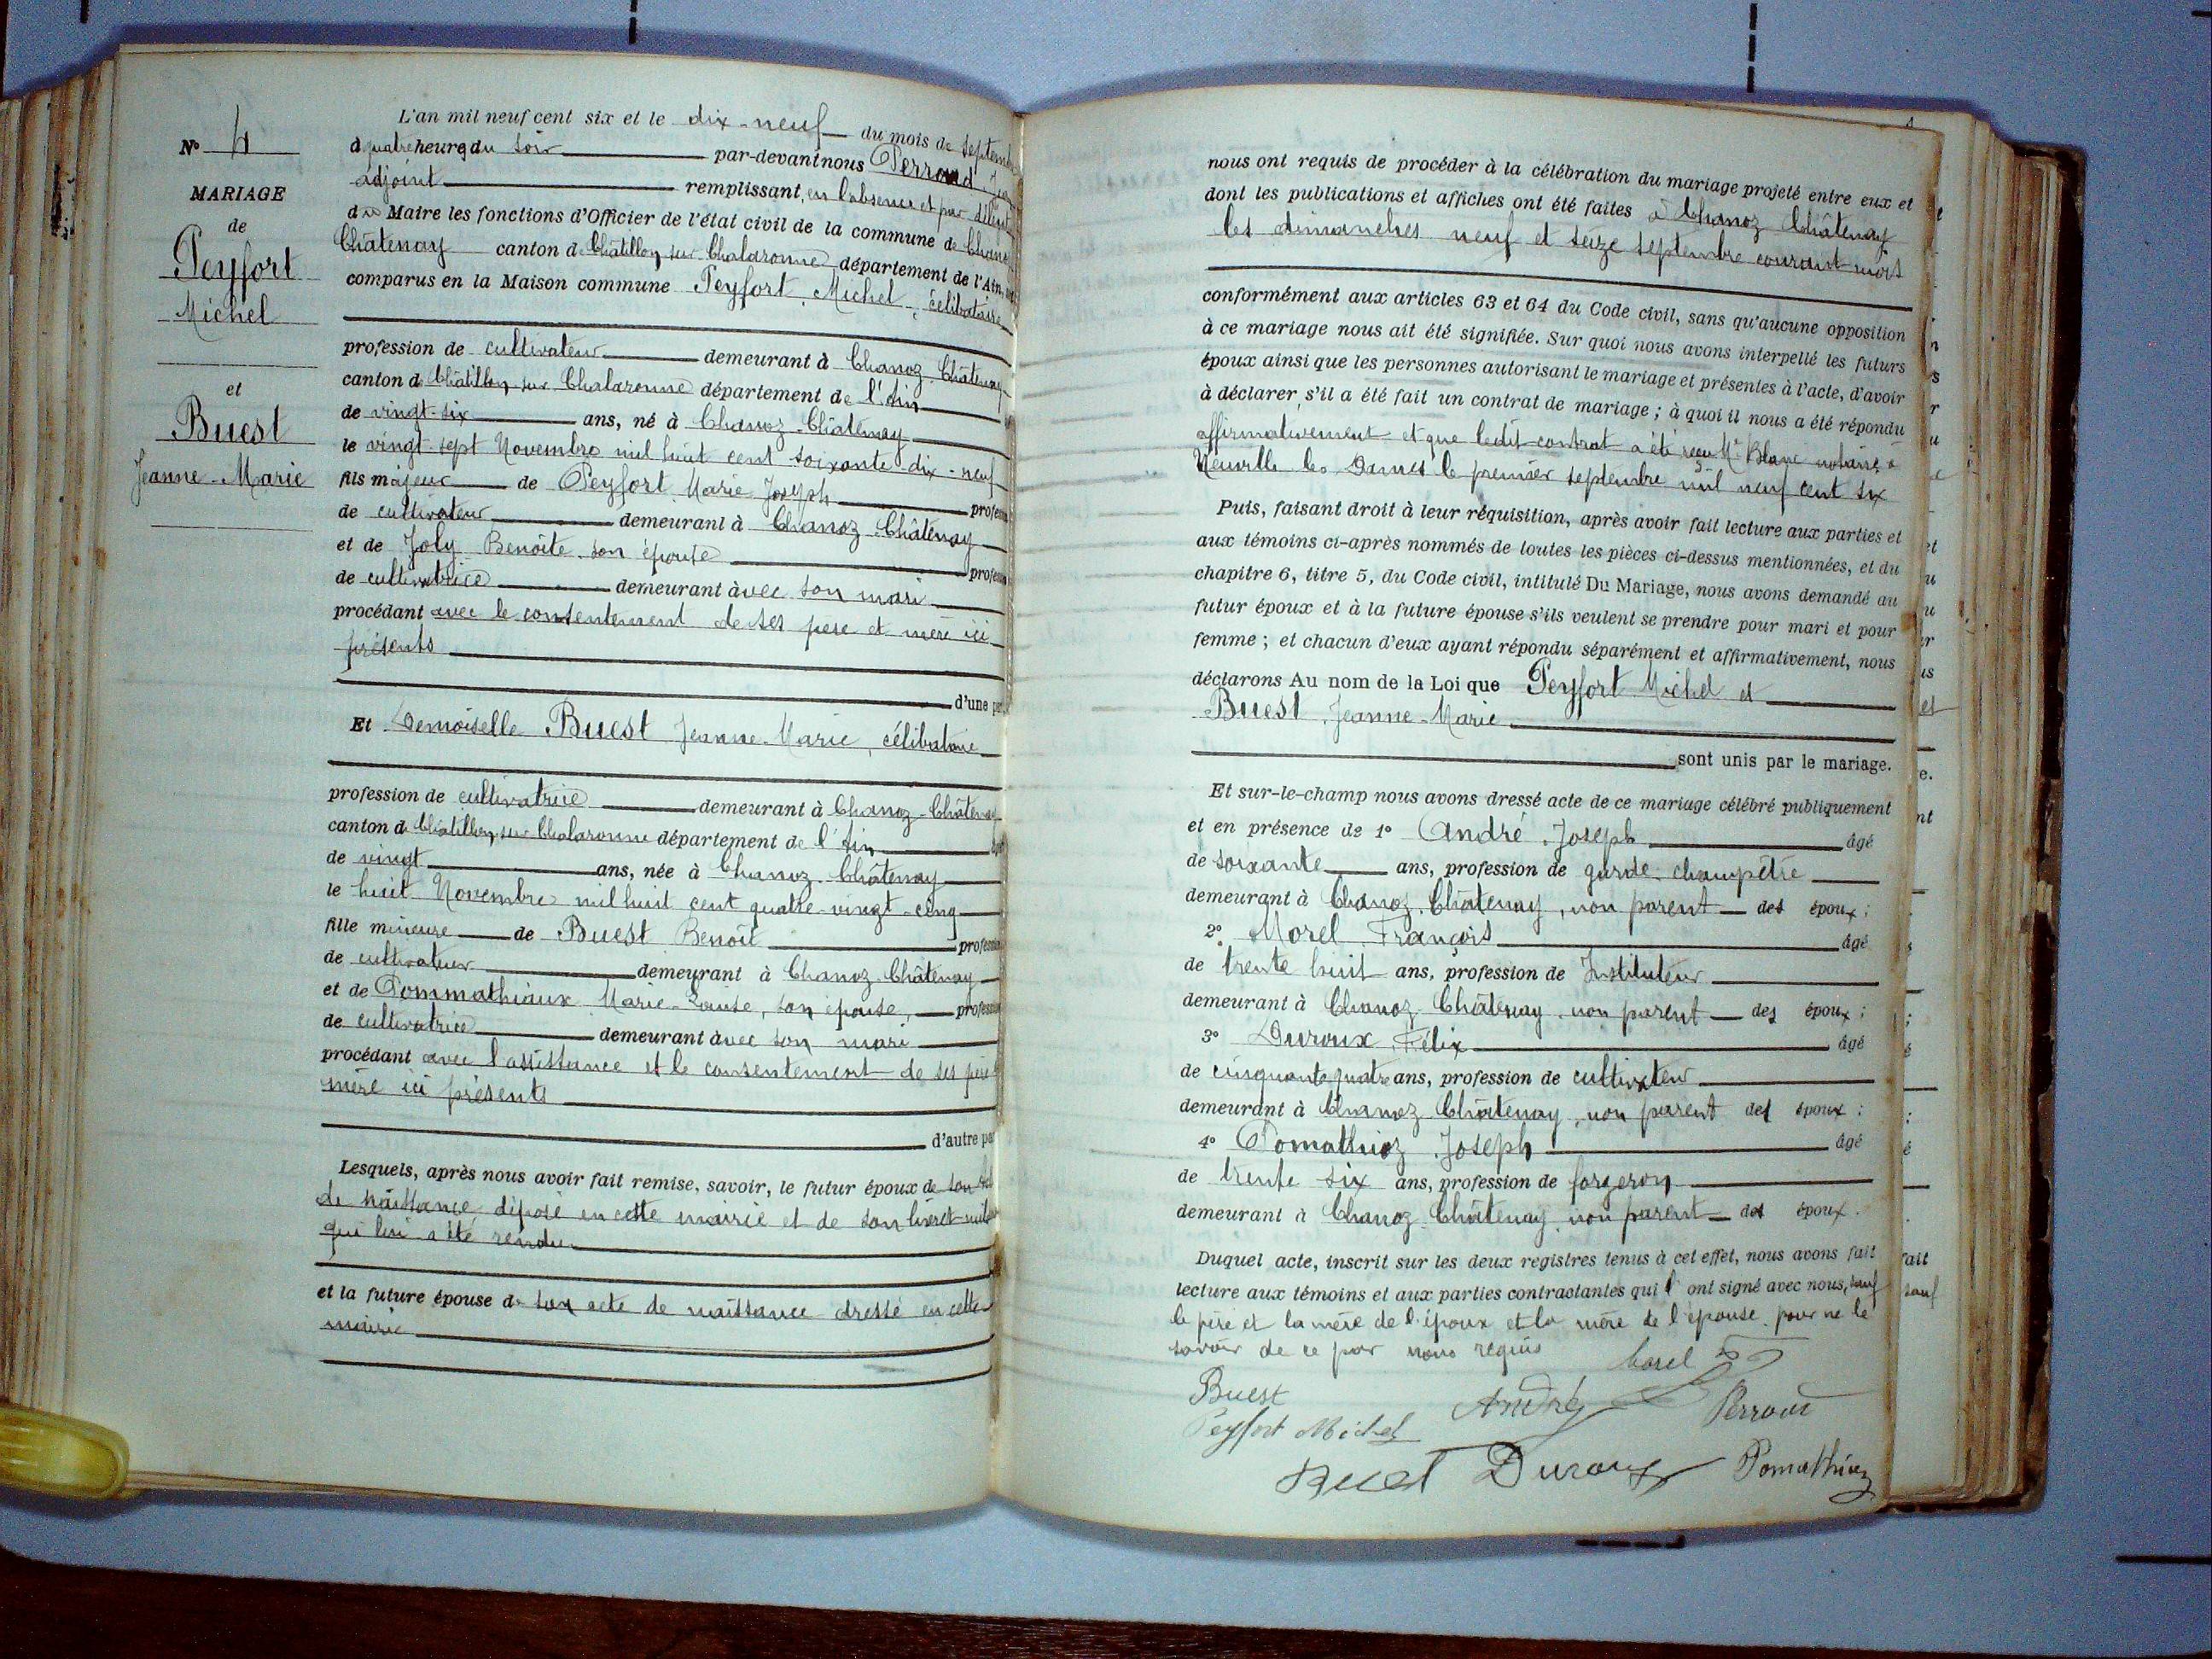 N° 4
MARIAGE
de
Peyfort
Michel
et
Buest
Jeanne-Marie
L'an mil neuf cent six et le dix-neuf du mois de septembre
à quatre heures du soir par-devant nous Perroud
adjoint remplissant, en l'absence et par
du Maire les fonctions d'Officier de l'état civil de la commune de Chanoz
Châtenay canton de Châtillon sur Chalaronne département de l'Ain,
comparus en la Maison commune Peyfort Michel, célibataire
profession de cultivateur demeurant à Chanoz-Châtenay
canton de Châtillon sur Chalaronne département de l'Ain
de vingt-six ans, né à Chanoz-Châtenay
le vingt-sept Novembre mil huit cent soixante-dix-neuf
fils majeur de Peyfort Marie Joseph profession
de cultivateur demeurant à Chanoz-Châtenay
et de Joly Benoîte son épouse profession
de cultivatrice demeurant avec son mari
procédant avec le consentement de ses père et mère ici
présents
d'une part
Et Demoiselle Buest Jeanne-Marie, célibataire
profession de cultivatrice demeurant à Chanoz-Châtenay
canton de Châtillon sur Chalaronne département de l'Ain
de vingt ans, née à Chanoz-Châtenay
le huit Novembre mil huit cent quatre-vingt-cinq
fille mineure de Buest Benoît profession
de cultivateur demeurant à Chanoz-Châtenay
et de Pommathiaux Marie-Louise, son épouse, profession
de cultivatrice demeurant avec son mari
procédant avec l'assistance et le consentement de ses père
mère ici présents
d'autre part
Lesquels, après nous avoir fait remise, savoir, le futur époux de son
de naissance déposé en cette mairie et de son livret
qui lui a été rendu
et la future épouse de son acte de naissance dressé en cette
mairie
nous ont requis de procéder à la célébration du mariage projeté entre eux et
dont les publications et affiches ont été faites à Chanoz Châtenay
les dimanches neuf et seize septembre courant mois
conformément aux articles 63 et 64 du Code civil, sans qu'aucune opposition
à ce mariage nous ait été signifiée. Sur quoi nous avons interpellé les futurs
époux ainsi que les personnes autorisant le mariage et présentes à l'acte, d'avoir
à déclarer s'il a été fait un contrat de mariage ; à quoi il nous a été répondu
affirmativement et que ledit contrat a été reçu Me Blanc notaire à
Neuville les Dames le premier septembre mil neuf cent six
Puis, faisant droit à leur réquisition, après avoir fait lecture aux parties et
aux témoins ci-après nommés de toutes les pièces ci-dessus mentionnées, et du
chapitre 6, titre 5, du Code civil, intitulé Du Mariage, nous avons demandé au
futur époux et à la future épouse s'ils veulent se prendre pour mari et pour
femme ; et chacun d'eux ayant répondu séparément et affirmativement, nous
déclarons Au nom de la Loi que Peyfort Michel et
Buest Jeanne-Marie
sont unis par le mariage.
Et sur-le-champ nous avons dressé acte de ce mariage célébré publiquement
et en présence de 1° André Joseph âgé
de soixante ans, profession de garde-champêtre
demeurant à Chanoz-Châtenay, non parent des époux ;
2° Morel François âgé
de trente huit ans, profession de Instituteur
demeurant à Chanoz-Châtenay non parent des époux ;
3° Duroux Félix âgé
de cinquante quatre ans, profession de cultivateur
demeurant à Chanoz Châtenay, non parent des époux ;
4° Pomathioz Joseph âgé
de trente six ans, profession de forgeron
demeurant à Chanoz-Châtenay non parent des époux.
Duquel acte, inscrit sur les deux registres tenus à cet effet, nous avons fait
lecture aux témoins et aux parties contractantes qui l'ont signé avec nous, sauf
le père et la mère de l'époux et la mère de l'épouse pour ne le
savoir de ce par nous requis
Morel
Buest
André
Perroud
Peyfort Michel
Buest
Duroux
Pomathioz